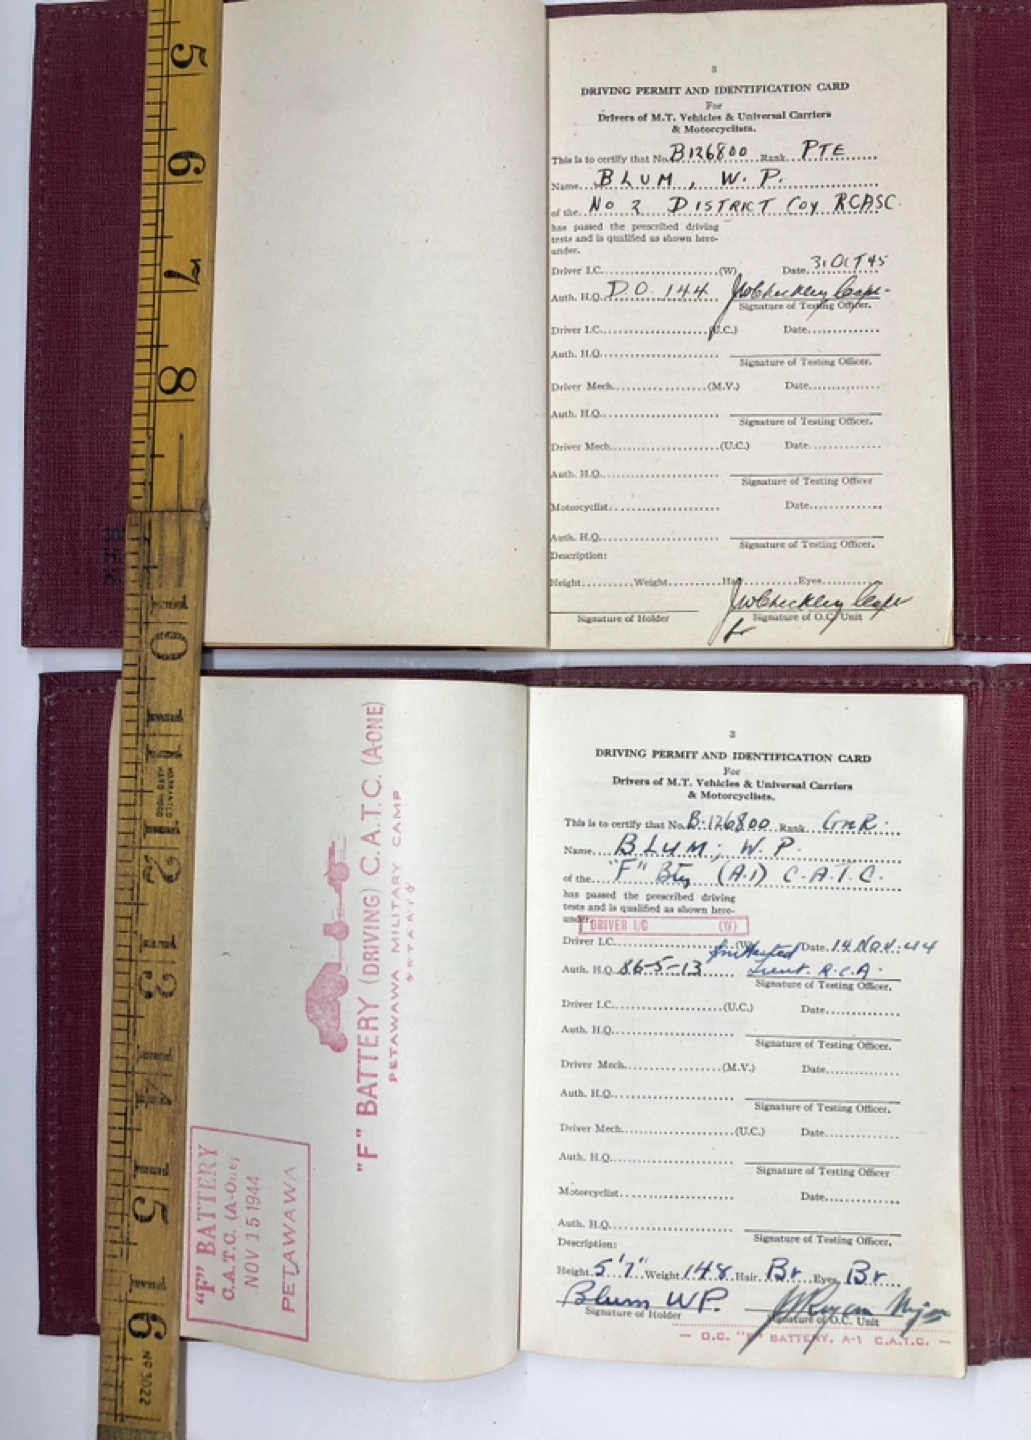 5
6
7
8
3
DRIVING PERMIT AND IDENTIFICATION CARD
For
Drivers of M.T. Vehicles & Universal Carriers
& Motorcyclists.
This is to certify that No. B126800 Rank PTE
Name BLUM, W. P.
of the No 2 DISTRICT Coy RCASC
has passed the prescribed driving
tests and is qualified as shown here-
under.
Driver I.C. (W) Date 31 OCT 45
Auth. H.Q. D.O. 144
Signature of Testing Officer.
Driver I.C. (U.C.) Date
Auth. H.Q.
Signature of Testing Officer.
Driver Mech. (M.V.) Date
Auth. H.Q.
Signature of Testing Officer.
Driver Mech. (U.C.) Date
Auth. H.Q.
Signature of Testing Officer
Motorcyclist Date
Auth. H.Q.
Signature of Testing Officer.
Description:
Height Weight Hair Eyes
Signature of Holder Signature of O.C. Unit
10
11
12
13
14
15
16
Nº 3022
"F" BATTERY (DRIVING) C.A.T.C. (A-ONE)
PETAWAWA MILITARY CAMP
ONTARIO
"F" BATTERY
C.A.T.C. (A-One)
NOV 15 1944
PETAWAWA
3
DRIVING PERMIT AND IDENTIFICATION CARD
For
Drivers of M.T. Vehicles & Universal Carriers
& Motorcyclists.
This is to certify that No. B-126800 Rank GNR.
Name BLUM, W. P.
of the "F" Bty (A.1) C.A.T.C.
has passed the prescribed driving
tests and is qualified as shown here-
under.
DRIVER I/C (W)
Driver I.C. (W) Date 14 Nov. 44
Auth. H.Q. 86-5-13 Lieut. R.C.A.
Signature of Testing Officer.
Driver I.C. (U.C.) Date
Auth. H.Q.
Signature of Testing Officer.
Driver Mech. (M.V.) Date
Auth. H.Q.
Signature of Testing Officer.
Driver Mech. (U.C.) Date
Auth. H.Q.
Signature of Testing Officer
Motorcyclist Date
Auth. H.Q.
Signature of Testing Officer.
Description:
Height 5'7" Weight 148 Hair Br Eyes Br
Blum WP.
Signature of Holder Signature of O.C. Unit
— O.C. "F" BATTERY, A-1 C.A.T.C. —